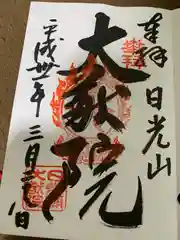 奉拝
日光山
大猷院
平成卅年
三月
日